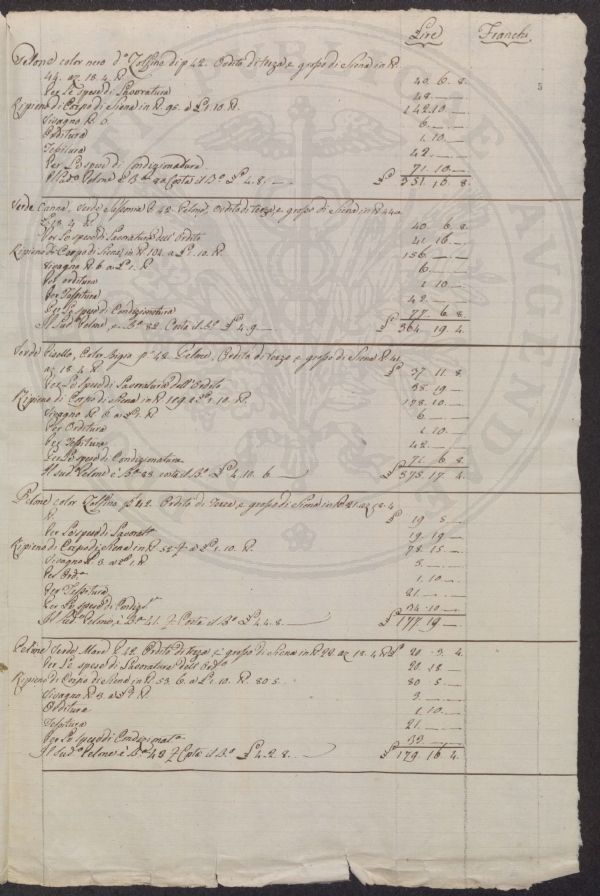 Lire Franchi
5
Pelone color nero d.º Zolfino di p 42. Ordito di terza e grosso di Siena in
44. az. 18. 4. 40. 6. 8.
Per Le spese di Lavoratura 48. —
Ripieno di Corpo di Siena in 95. a £ 1. 10. 142. 10. —
Vivagno 6. 6. —
Orditura 1. 10. —
Tessitura 42. —
Per Le spese di Condizionatura 71. 10. —
Il Sud.º Pelone è B.ª 80 Costa il B.º £ 4. 8. — £ 351. 16. 8.
Verde Canna, Verde Sassonia p. 42. Pelone, Ordito di terza e grosso di Siena in 44 a
£ 18. 4. 40. 6. 8.
Per Le spese di Lavoratura dell' Ordito 41. 16. —
Ripieno di Corpo di Siena in 104. a £ 1. 10. 156. —
Vivagno 6 a £ 1. 6. —
Per orditura 1. 10. —
Per Tessitura 42. —
Per Le spese di Condizionatura 77. 6. 8.
Il Sud.º Pelone, è B.ª 82. Costa il B.º £ 4. 9. — £ 364. 19. 4.
Verde Color Bigio p.ª 42. Pelone, Ordito di terza e grosso di Siena 41.
az. 18. 4. £ 37. 11. 8.
Per Le spese di Lavoratura dell' Ordito 38. 19. —
Ripieno di Corpo di Siena in 119. a £ 1. 10. 178. 10. —
Vivagno 6. a £ 6. —
Per Orditura 1. 10. —
Per Tessitura 42. —
Per Le spese di Condizionatura 71. 6. 8.
Il Sud.º Pelone è B.ª 83 costa il B.º £ 4. 10. 6. £ 375. 17. 4.
Pelone color Zolfino p.ª 42. Ordito di Terza e grosso di Siena in 21. az. 18. 4
£ 19. 5. —
Per Le spese di Lavorat.ª 19. 19. —
Ripieno di Corpo di Siena in 52 ½ a £ 1. 10. 78. 15. —
Vivagno 3. a £ 1. 3. —
Per Ord.ª 1. 10. —
Per Tessitura 21. —
Per Le spese di 34. 10. —
Il Sud.º Pelone, è B.ª 41. ½ Costa il B.º £ 4. 8. — £ 177. 19. —
Pelone Verde Mare p. 42. Ordito di terza e grosso di Siena in 22. az. 18. 4. £ 20. 3. 4.
Per Le spese di Lavoratura dell' Ord.º 20. 18. —
Ripieno di Corpo di Siena in 53. 6. a £ 1. 10. 80. 5. 80. 5. —
Vivagno 3. a £ 1. 3. —
Orditura 1. 10. —
Tessitura 21. —
Per Le spese di Condizionat.ª 33. —
Il Sud.º Pelone è B.ª 43 ½ Costa il B.º £ 4. 2. 8. — £ 179. 16. 4.